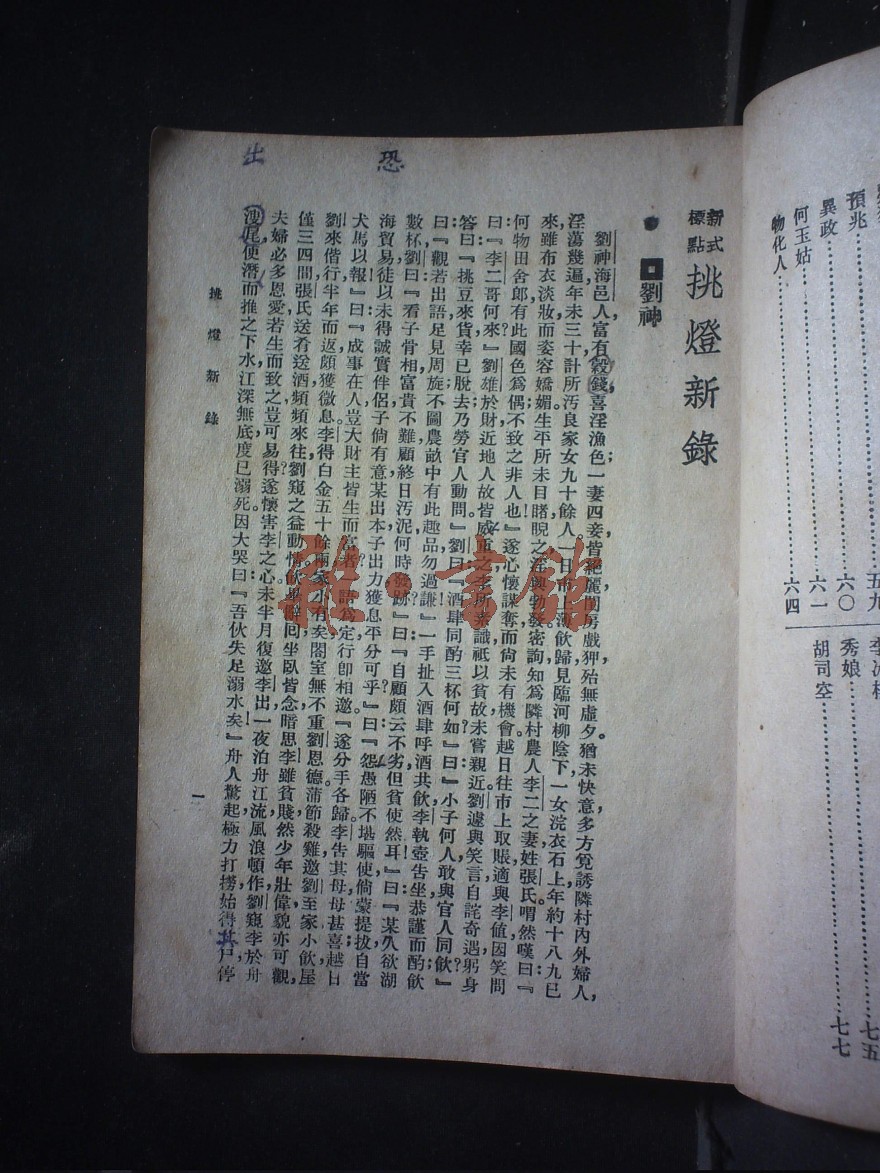 新式標點 挑燈新錄
劉神
劉神海邑人，富有穀錢，喜淫漁色；一妻四妾，皆絕麗，閨房戲狎，殆無虛夕。猶未快意，多方覓誘，隣村內外婦人，
淫蕩幾遍，年未三十，計所汚良家女九十餘人。一日市上漸飲歸，見臨河柳陰下一女浣衣石上，年約十八九，已
來雖布衣淡妝，而姿容嬌媚，生平所未目睹，睨之淫興勃發，密詢知爲隣村農人李二之妻，姓張氏。喟然嘆曰：『
何物田舍郎，有此國色爲偶？不致之，非人也！』遂心懷謀奪，而尙未有機會。越日往市上取賬，適與李値，因笑問
曰：『李二哥何來？』劉雄於財，近地人故皆威重之，李所素識，祇以貧故，未嘗親近。劉遽與笑言，自詫奇遇，躬身
答曰：『挑豆來貨，幸已脫去，乃勞官人動問。』劉曰：『酒肆同酌三杯何如？』曰：『小子何人，敢與官人同飲？』
曰：『觀若出語，足見周旋，不圖農畝中有此趣品，勿過謙！』一手扯入酒肆，呼酒共飲，李執壺吿坐，恭謹而酌。飲
數杯，劉曰：『看子骨相，富貴不難，顧終日汚泥，何時發跡？』曰：『自顧頗云不劣，但貧使然耳！』曰：『某久欲湖
海貿易，徒以未得誠實伴侶，子倘有意，某出本，子出力，獲息平分可乎？』曰：『怨愚陋不堪驅使，倘蒙提拔，自當
犬馬以報！』曰：『成事在人，豈大財主皆生而富者？』語爲定，行卽相邀，』遂分手各歸。李吿其母，母甚喜。越日
劉來偕行，半年而返，頗獲微息，李得白金五十餘兩，家小有矣，閤室無不重劉恩德。蒲節殺雞邀劉至家小飲，屋
僅三四間，張氏送肴送酒，頻頻來往，劉窺之益動情，飲畢辭囘，坐臥皆念，暗思李雖貧賤，然少年壯偉，貌亦可觀，
夫婦必多恩愛，若生而致之，豈可易得？遂懷害李之心。未半月，復邀李出，一夜泊舟江流，風浪頓作，劉窺李於舟
溲尾，使潛而推之下水，江深無底，度已溺死，因大哭曰：『吾伙失足溺水矣！』舟人驚起，極力打撈，始得其尸，停
挑燈新錄
一
恐
出
預兆
異政
何玉姑
物化人
五九
六〇
六一
六四
秀娘
胡司空
七五
七七
雅·書館